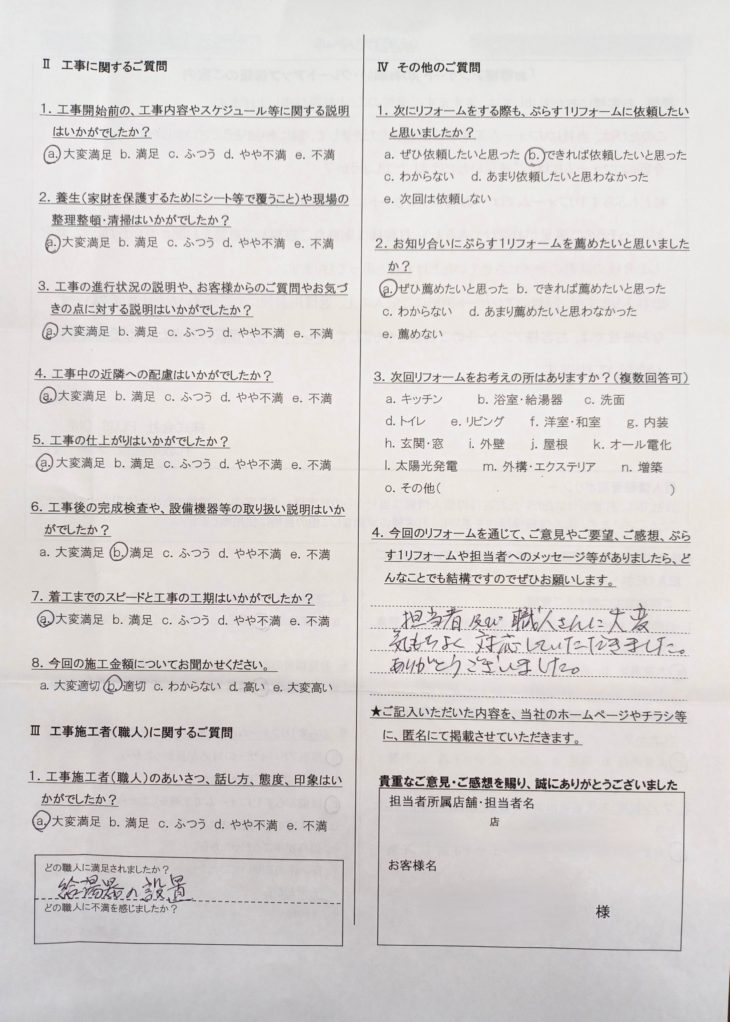 Ⅱ 工事に関するご質問
1. 工事開始前の、工事内容やスケジュール等に関する説明
はいかがでしたか？
a. 大変満足 b. 満足 c. ふつう d. やや不満 e. 不満
2. 養生(家財を保護するためにシート等で覆うこと)や現場の
整理整頓・清掃はいかがでしたか？
a. 大変満足 b. 満足 c. ふつう d. やや不満 e. 不満
3. 工事の進行状況の説明や、お客様からのご質問やお気づ
きの点に対する説明はいかがでしたか？
a. 大変満足 b. 満足 c. ふつう d. やや不満 e. 不満
4. 工事中の近隣への配慮はいかがでしたか？
a. 大変満足 b. 満足 c. ふつう d. やや不満 e. 不満
5. 工事の仕上がりはいかがでしたか？
a. 大変満足 b. 満足 c. ふつう d. やや不満 e. 不満
6. 工事後の完成検査や、設備機器等の取り扱い説明はいか
がでしたか？
a. 大変満足 b. 満足 c. ふつう d. やや不満 e. 不満
7. 着工までのスピードと工事の工期はいかがでしたか？
a. 大変満足 b. 満足 c. ふつう d. やや不満 e. 不満
8. 今回の施工金額についてお聞かせください。
a. 大変適切 b. 適切 c. わからない d. 高い e. 大変高い
Ⅲ 工事施工者(職人)に関するご質問
1. 工事施工者(職人)のあいさつ、話し方、態度、印象はい
かがでしたか？
a. 大変満足 b. 満足 c. ふつう d. やや不満 e. 不満
どの職人に満足されましたか？
給湯器の設置
どの職人に不満を感じましたか？
Ⅳ その他のご質問
1. 次にリフォームをする際も、ぷらす1リフォームに依頼したい
と思いましたか？
a. ぜひ依頼したいと思った b. できれば依頼したいと思った
c. わからない d. あまり依頼したいと思わなかった
e. 次回は依頼しない
2. お知り合いにぷらす1リフォームを薦めたいと思いました
か？
a. ぜひ薦めたいと思った b. できれば薦めたいと思った
c. わからない d. あまり薦めたいと思わなかった
e. 薦めない
3. 次回リフォームをお考えの所はありますか？(複数回答可)
a. キッチン b. 浴室・給湯器 c. 洗面
d. トイレ e. リビング f. 洋室・和室 g. 内装
h. 玄関・窓 i. 外壁 j. 屋根 k. オール電化
l. 太陽光発電 m. 外構・エクステリア n. 増築
o. その他( )
4. 今回のリフォームを通じて、ご意見やご要望、ご感想、ぷら
す1リフォームや担当者へのメッセージ等がありましたら、ど
んなことでも結構ですのでぜひお願いします。
担当者及び職人さんに大変
気もちよく対応していただきました。
ありがとうございました。
★ご記入いただいた内容を、当社のホームページやチラシ等
に、匿名にて掲載させていただきます。
貴重なご意見・ご感想を賜り、誠にありがとうございました
担当者所属店舗・担当者名
店
お客様名
様